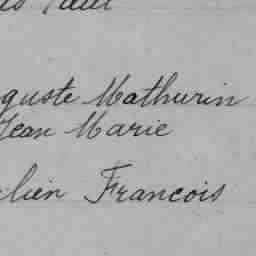 guste Mathurin
Jean Marie
lien Francois